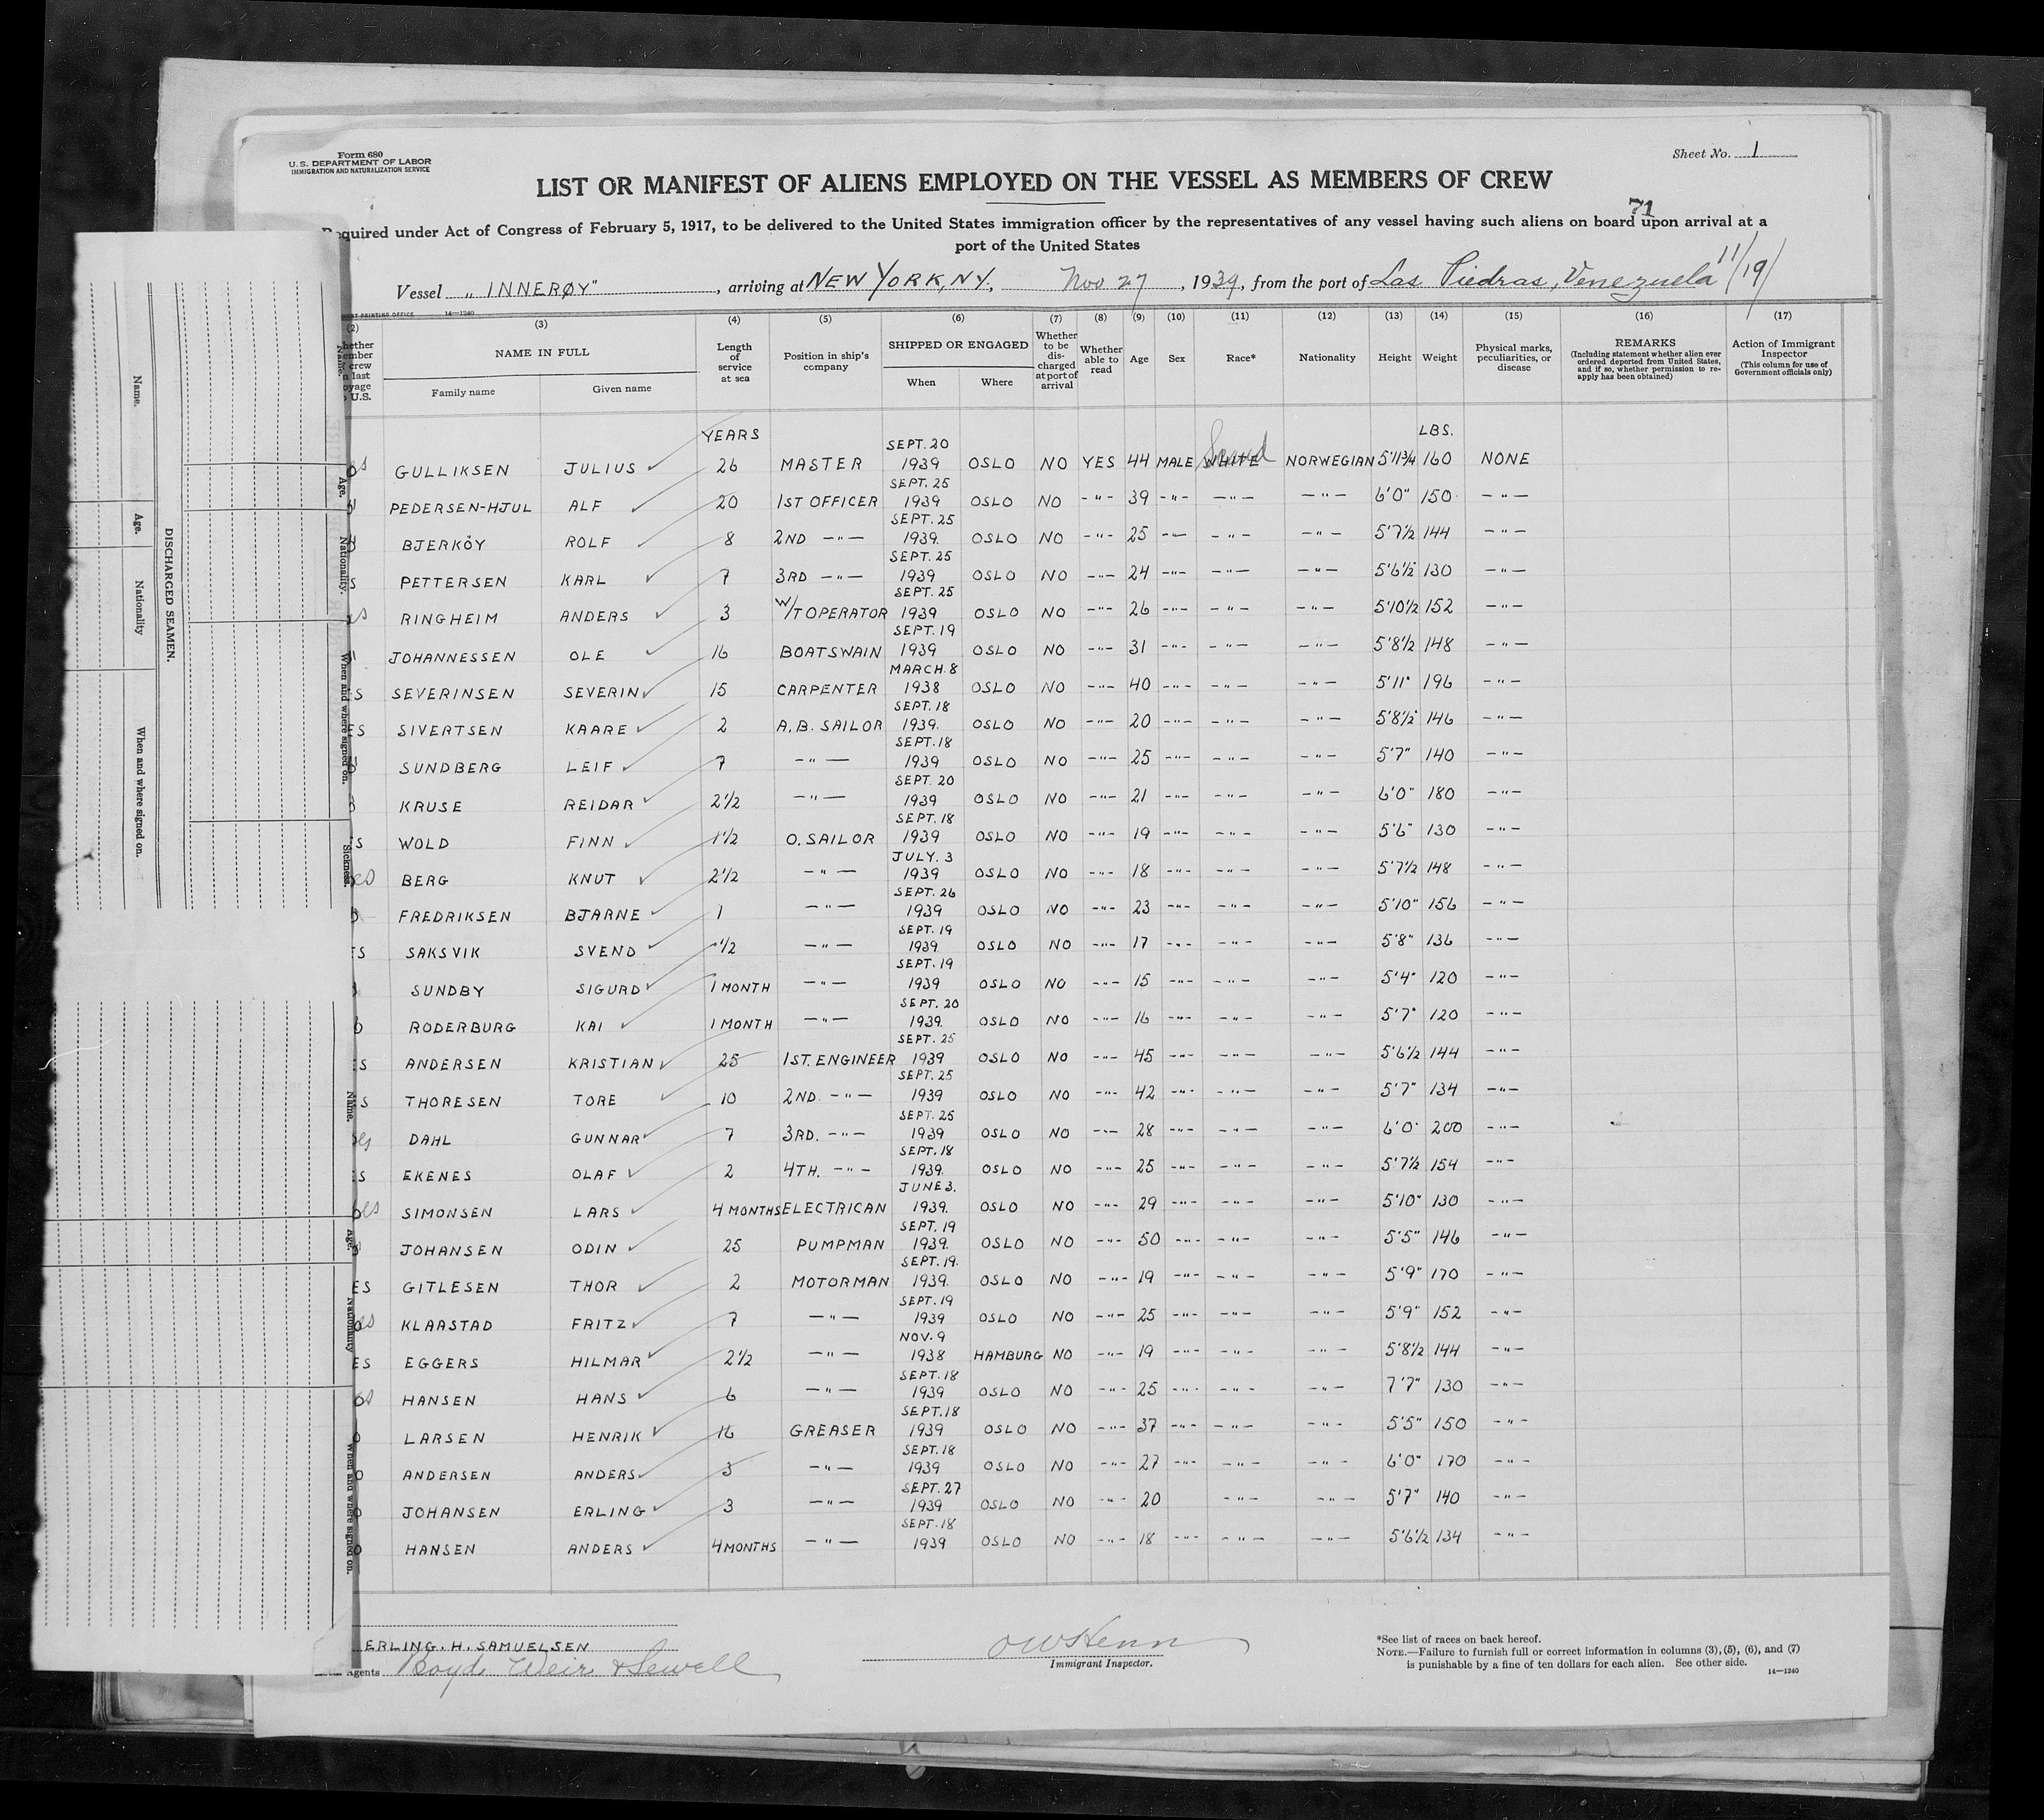 Form 680
U. S. DEPARTMENT OF LABOR
IMMIGRATION AND NATURALIZATION SERVICE
Sheet No. 1
LIST OR MANIFEST OF ALIENS EMPLOYED ON THE VESSEL AS MEMBERS OF CREW
71
Required under Act of Congress of February 5, 1917, to be delivered to the United States immigration officer by the representatives of any vessel having such aliens on board upon arrival at a
port of the United States
Vessel "INNERØY", arriving at NEW YORK, N.Y., Nov 27, 1939, from the port of Las Piedras, Venezuela 11/19/
(2) (3) (4) (5) (6) (7) (8) (9) (10) (11) (12) (13) (14) (15) (16) (17)
NAME IN FULL
Family name Given name
Length of service at sea
Position in ship's company
SHIPPED OR ENGAGED
When Where
Whether to be discharged at port of arrival
Whether able to read
Age Sex Race* Nationality Height Weight
Physical marks, peculiarities, or disease
REMARKS
(Including statement whether alien ever ordered deported from United States, and if so, whether permission to re-apply has been obtained)
Action of Immigrant Inspector
(This column for use of Government officials only)
YEARS LBS.
GULLIKSEN JULIUS 26 MASTER SEPT. 20 1939 OSLO NO YES 44 MALE WHITE Scand NORWEGIAN 5'11¾ 160 NONE
PEDERSEN-HJUL ALF 20 1ST OFFICER SEPT. 25 1939 OSLO NO -"- 39 -"- -"- -"- 6'0" 150 -"-
BJERKÖY ROLF 8 2ND -"- SEPT. 25 1939. OSLO NO -"- 25 -"- -"- -"- 5'7½ 144 -"-
PETTERSEN KARL 7 3RD -"- SEPT. 25 1939 OSLO NO -"- 24 -"- -"- -"- 5'6½ 130 -"-
RINGHEIM ANDERS 3 W/T OPERATOR SEPT. 25 1939 OSLO NO -"- 26 -"- -"- -"- 5'10½ 152 -"-
JOHANNESSEN OLE 16 BOATSWAIN SEPT. 19 1939 OSLO NO -"- 31 -"- -"- -"- 5'8½ 148 -"-
SEVERINSEN SEVERIN 15 CARPENTER MARCH. 8 1938 OSLO NO -"- 40 -"- -"- -"- 5'11" 196 -"-
SIVERTSEN KAARE 2 A.B. SAILOR SEPT. 18 1939. OSLO NO -"- 20 -"- -"- -"- 5'8½ 146 -"-
SUNDBERG LEIF 7 -"- SEPT. 18 1939 OSLO NO -"- 25 -"- -"- -"- 5'7" 140 -"-
KRUSE REIDAR 2½ -"- SEPT. 20 1939 OSLO NO -"- 21 -"- -"- -"- 6'0" 180 -"-
WOLD FINN 1½ O. SAILOR SEPT. 18 1939 OSLO NO -"- 19 -"- -"- -"- 5'6" 130 -"-
BERG KNUT 2½ -"- JULY. 3 1939 OSLO NO -"- 18 -"- -"- -"- 5'7½ 148 -"-
FREDRIKSEN BJARNE 1 -"- SEPT. 26 1939 OSLO NO -"- 23 -"- -"- -"- 5'10" 156 -"-
SAKSVIK SVEND ½ -"- SEPT. 19 1939. OSLO NO -"- 17 -"- -"- -"- 5'8" 136 -"-
SUNDBY SIGURD 1 MONTH -"- SEPT. 19 1939 OSLO NO -"- 15 -"- -"- -"- 5'4" 120 -"-
RODERBURG KAI 1 MONTH -"- SEPT. 20 1939. OSLO NO -"- 16 -"- -"- -"- 5'7" 120 -"-
ANDERSEN KRISTIAN 25 1ST. ENGINEER SEPT. 25 1939 OSLO NO -"- 45 -"- -"- -"- 5'6½ 144 -"-
THORESEN TORE 10 2ND. -"- SEPT. 25 1939 OSLO NO -"- 42 -"- -"- -"- 5'7" 134 -"-
DAHL GUNNAR 7 3RD. -"- SEPT. 25 1939 OSLO NO -"- 28 -"- -"- -"- 6'0" 200 -"-
EKENES OLAF 2 4TH. -"- SEPT. 18 1939. OSLO NO -"- 25 -"- -"- -"- 5'7½ 154 -"-
SIMONSEN LARS 4 MONTHS ELECTRICAN JUNE 3. 1939. OSLO NO -"- 29 -"- -"- -"- 5'10" 130 -"-
JOHANSEN ODIN 25 PUMPMAN SEPT. 19 1939. OSLO NO -"- 50 -"- -"- -"- 5'5" 146 -"-
GITLESEN THOR 2 MOTORMAN SEPT. 19. 1939. OSLO NO -"- 19 -"- -"- -"- 5'9" 170 -"-
KLARSTAD FRITZ 7 -"- SEPT. 19 1939 OSLO NO -"- 25 -"- -"- -"- 5'9" 152 -"-
EGGERS HILMAR 2½ -"- NOV. 9 1938 HAMBURG NO -"- 19 -"- -"- -"- 5'8½ 144 -"-
HANSEN HANS 6 -"- SEPT. 18 1939 OSLO NO -"- 25 -"- -"- -"- 7'7" 130 -"-
LARSEN HENRIK 16 GREASER SEPT. 18 1939 OSLO NO -"- 37 -"- -"- -"- 5'5" 150 -"-
ANDERSEN ANDERS 3 -"- SEPT. 18 1939 OSLO NO -"- 27 -"- -"- -"- 6'0" 170 -"-
JOHANSEN ERLING 3 -"- SEPT. 27 1939 OSLO NO -"- 20 -"- -"- 5'7" 140 -"-
HANSEN ANDERS 4 MONTHS -"- SEPT. 18 1939 OSLO NO -"- 18 -"- -"- -"- 5'6½ 134 -"-
ERLING. H. SAMUELSEN
Agents Boyd, Weir & Sewell
OWHenn
Immigrant Inspector.
*See list of races on back hereof.
NOTE.—Failure to furnish full or correct information in columns (3), (5), (6), and (7)
is punishable by a fine of ten dollars for each alien. See other side.
14—1240
DISCHARGED SEAMEN.
Name. Age. Nationality When and where signed on.
Name. Age. Nationality. When and where signed on. Sickness.
Name. Age. Nationality When and where signed on.